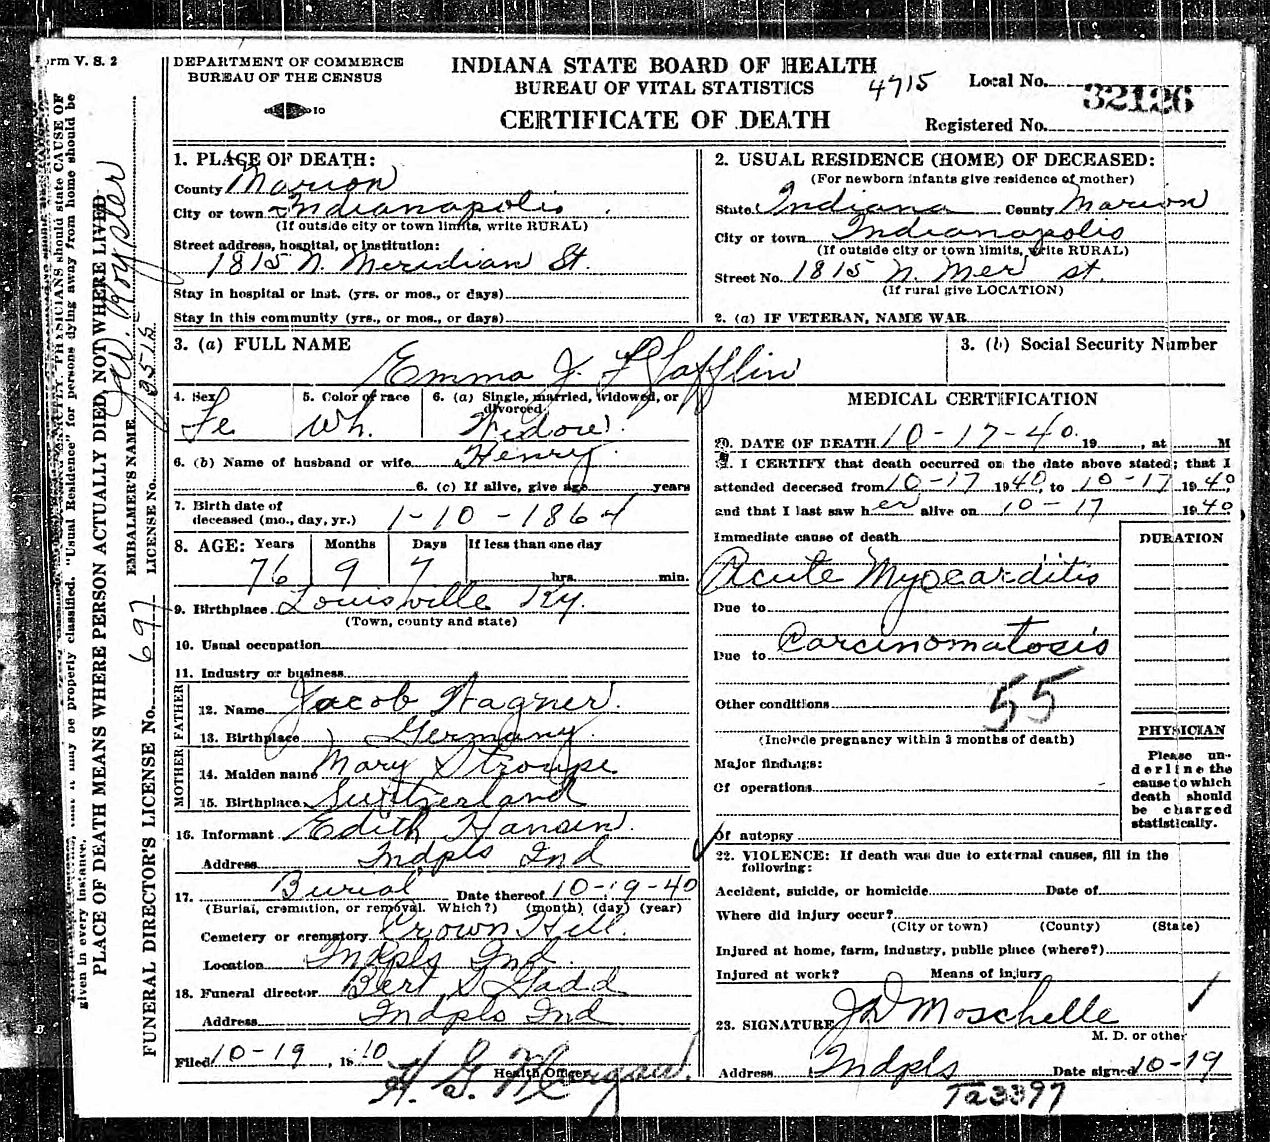 Form V. S. 2
DEPARTMENT OF COMMERCE
BUREAU OF THE CENSUS
INDIANA STATE BOARD OF HEALTH
BUREAU OF VITAL STATISTICS
CERTIFICATE OF DEATH
4715
Local No.
32126
Registered No.
1. PLACE OF DEATH:
County Marion
City or town Indianapolis
(If outside city or town limits, write RURAL)
Street address, hospital, or institution:
1815 N. Meridian St.
Stay in hospital or inst. (yrs. or mos., or days)
Stay in this community (yrs., or mos., or days)
2. USUAL RESIDENCE (HOME) OF DECEASED:
(For newborn infants give residence of mother)
State Indiana County Marion
City or town Indianapolis
(If outside city or town limits, write RURAL)
Street No. 1815 N. Mer St.
(If rural give LOCATION)
2. (a) IF VETERAN, NAME WAR
3. (a) FULL NAME
Emma J. Lafflin
3. (b) Social Security Number
4. Sex
Fe
5. Color of race
Wh.
6. (a) Single, married, widowed, or divorced
Widow.
6. (b) Name of husband or wife Henry
6. (c) If alive, give age years
7. Birth date of
deceased (mo., day, yr.) 1-10-1864
8. AGE: Years Months Days If less than one day
76 9 7 hrs. min.
9. Birthplace Louisville Ky.
(Town, county and state)
10. Usual occupation
11. Industry or business
FATHER
12. Name Jacob Wagner.
13. Birthplace Germany.
MOTHER
14. Maiden name Mary Stroupe
15. Birthplace Switzerland
16. Informant Edith Hansen.
Address Indpls Ind
17. Burial Date thereof 10-19-40
(Burial, cremation, or removal. Which?) (month) (day) (year)
Cemetery or crematory Crown Hill.
Location Indpls Ind.
18. Funeral director Bert S Gadd
Address Indpls Ind
Filed 10-19, 19
H. G. Morgan.
Health Officer
MEDICAL CERTIFICATION
20. DATE OF DEATH 10-17-40 19 , at M
21. I CERTIFY that death occurred on the date above stated; that I
attended deceased from 10-17 1940, to 10-17 1940,
and that I last saw her alive on 10-17 1940,
Immediate cause of death
DURATION
Acute Myocarditis
Due to
Due to Carcinomatosis
55
Other conditions
(Include pregnancy within 3 months of death)
Major findings:
Of operations
Of autopsy
PHYSICIAN
Please un-
derline the
cause to which
death should
be charged
statistically.
22. VIOLENCE: If death was due to external causes, fill in the
following:
Accident, suicide, or homicide Date of
Where did injury occur?
(City or town) (County) (State)
Injured at home, farm, industry, public place (where?)
Injured at work? Means of injury
23. SIGNATURE J D Moschelle
M. D. or other
Address Indpls Date signed 10-19
Ta3397
PHYSICIANS should state CAUSE OF
be properly classified. "Usual Residence" for persons dying away from home should be
given in every instance.
PLACE OF DEATH MEANS WHERE PERSON ACTUALLY DIED, NOT WHERE LIVED
EMBALMER'S NAME Royster
LICENSE No. 2515
FUNERAL DIRECTOR'S LICENSE No. 697